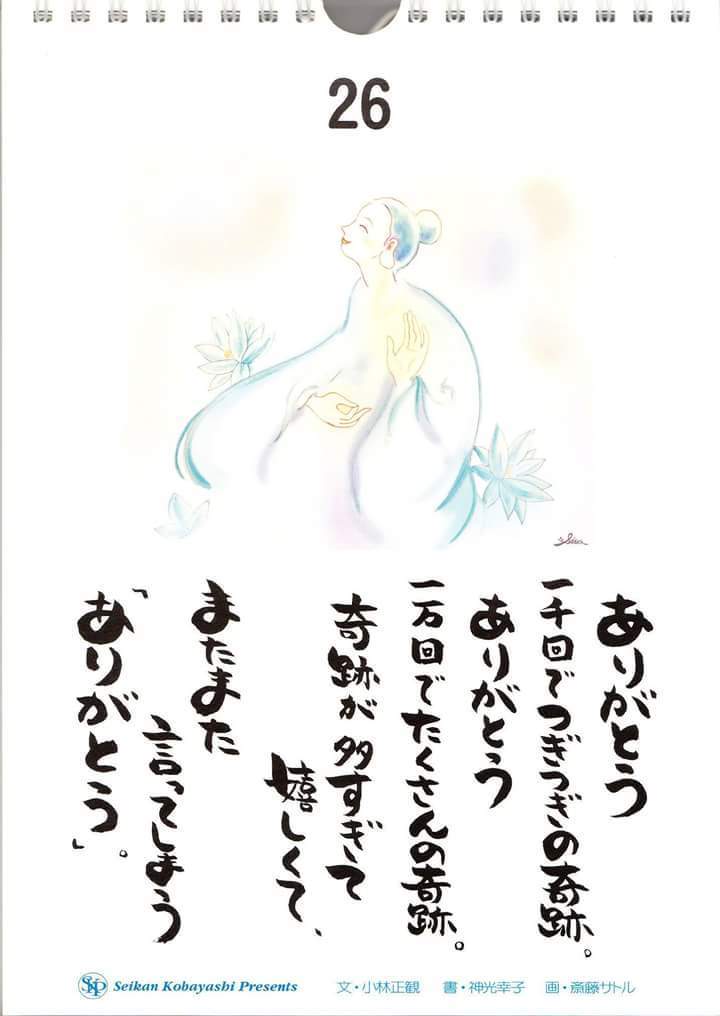 26
ありがとう
一千回でつぎつぎの奇跡。
ありがとう
一万回でたくさんの奇跡。
奇跡が多すぎて
嬉しくて、
またまた
言ってしまう
「ありがとう」。
SKP Seikan Kobayashi Presents 文・小林正観 書・神光幸子 画・斎藤サトル